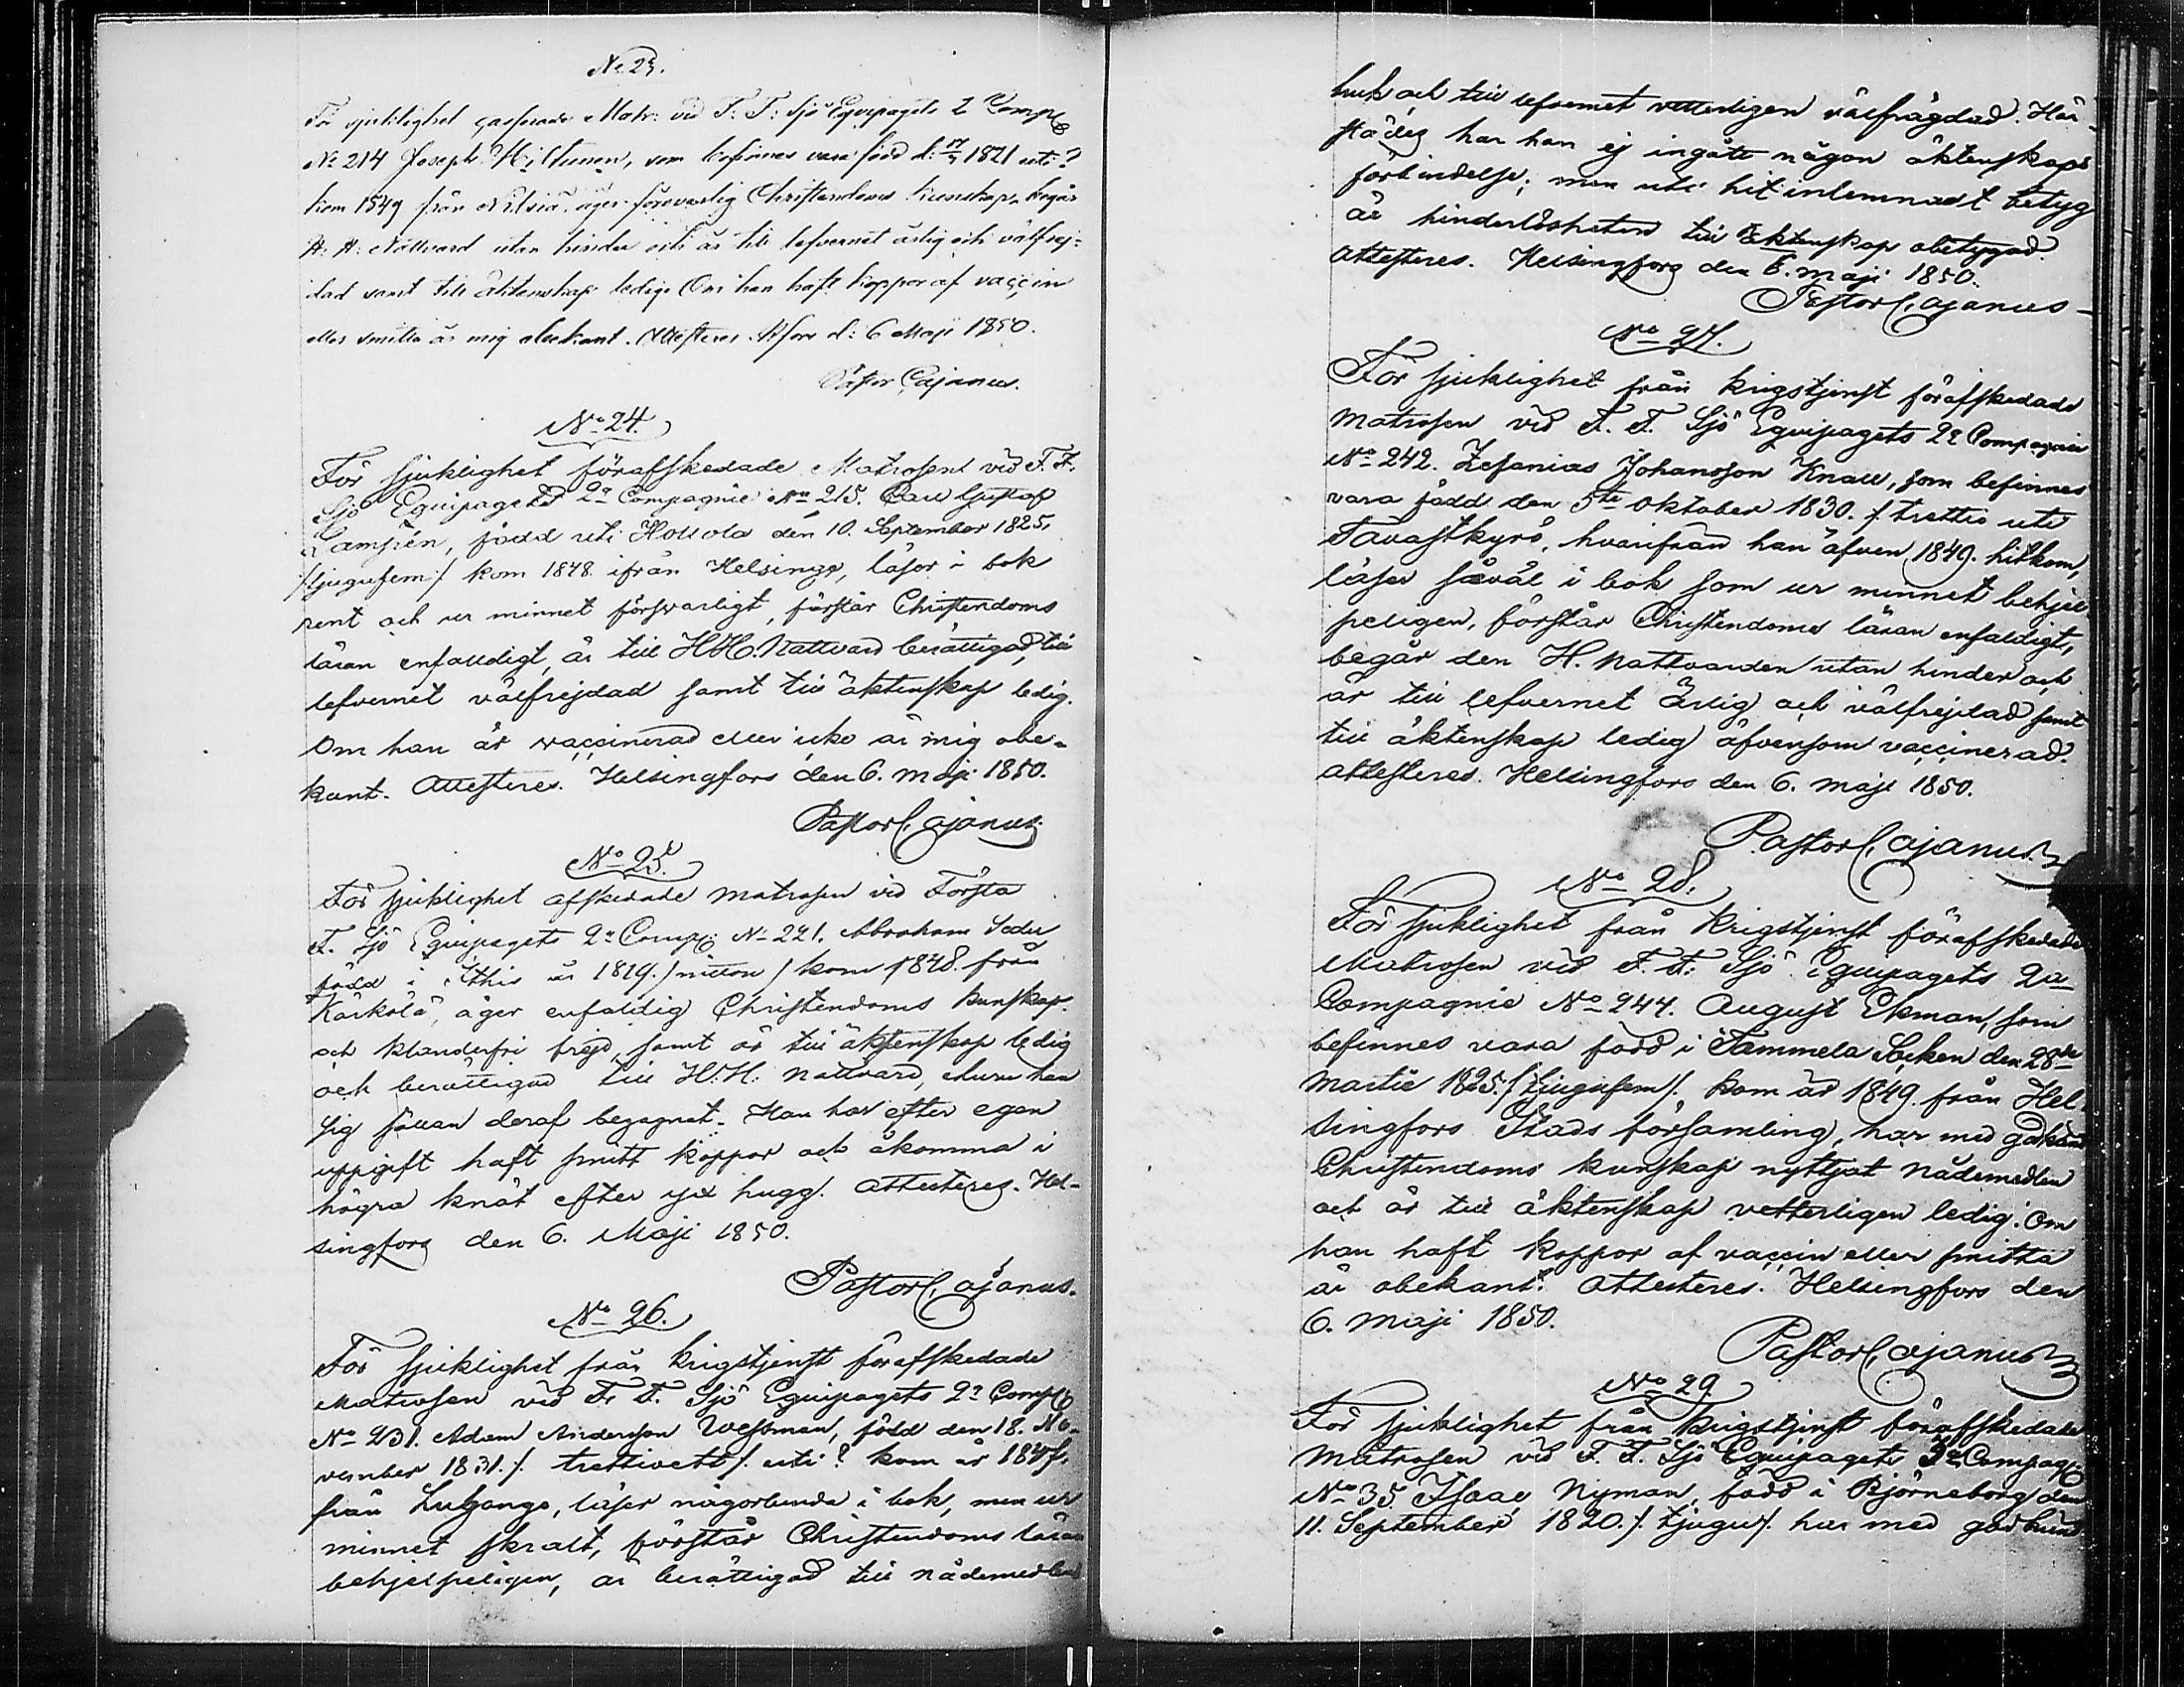 No 23.
För sjuklighet casserade Matr: vid F: F: Sjö Equipagets 2 Comp:
No 214 Joseph Hiltunen, som befinnes vara född d: 17/3 1821 uti ?
kom 1849 från Nilsiä, äger försvarlig Christendoms kunskap, begår
H: H: Nattvard utan hinder och är till lefvernet ärlig och välfrej-
dad samt till äktenskap ledig. Om han haft koppor af vaccin
eller smitta är mig obekant. Attesteres. Hfors d: 6 Maji 1850.
Pastor Cajanus.
No 24.
För sjuklighet förafskedade Matrosen vid F. F.
Sjö Equipagets 2a Compagnie No 215. Carl Gustaf
Lampén, född uti Hollola den 10. September 1825.
/:tjugufem:/ kom 1848 ifrån Helsinge, läser i bok
rent och ur minnet försvarligt, förstår Christendoms
läran enfaldigt, är till H.H. Nattvard berättigad, till
lefvernet välfrejdad samt till äktenskap ledig.
Om han är vaccinerad eller icke är mig obe-
kant. Attesteres. Helsingfors den 6. Maji 1850.
Pastor Cajanus.
No 25.
För sjuklighet afskedade matrosen vid Första
F. Sjö Equipagets 2a Comp: No 221. Abraham Seder
född i Ithis år 1819. /nitton/ kom 1848. från
Kärkölä, äger enfaldig Christendoms kunskap
och klanderfri frejd, samt är till äktenskap ledig
och berättigad till H:H: Nattvard, ehuru han
sig sällan deraf begagnat. Han har efter egen
uppgift haft smitt koppor och åkomma i
högra knät efter yx hugg. Attesteres. Hel-
singfors den 6. Maji 1850.
Pastor Cajanus.
No 26.
För sjuklighet från krigstjenst förafskedade
Matrosen vid F. F. Sjö Equipagets 2a Comp:
No 231. Adam Andersson Wessman, född den 18. No-
vember 1831. /. trettioett /. uti ? kom år 184
från Luhango, läser någorlunda i bok, men ur
minnet skralt, förstår Christendoms läran
behjelpeligen, är berättigad till nådemedlens
bruk och till lefvernet vetterligen välfrägdad. Här-
städes har han ej ingått någon äktenskaps
förbindelse; men uti hit inlemnadt betyg
är hinderlösheten till äktenskap obetygad.
Attesteres. Helsingfors den 6. Maji 1850.
Pastor Cajanus
No 27.
För sjuklighet från krigstjenst förafskedade
Matrosen vid F. F. Sjö Equipagets 2a Compagnie
No 242. Zefanias Johansson Knall, som befinnes
vara född den 5te Oktober 1830. /. trettio uti
Tavastkyrö, hvarifrån han äfven 1849. hitkom,
läser såväl i bok som ur minnet behjel
peligen, förstår Christendoms läran enfaldigt,
begår den H. Nattvarden utan hinder och
är till lefvernet ärlig och välfrejdad samt
till äktenskap ledig äfvensom vaccinerad.
Attesteres. Helsingfors den 6. Maji 1850.
Pastor Cajanus.
No 28.
För sjuklighet från krigstjenst förafskedade
Matrosen vid F. F. Sjö Equipagets 2a
Compagnie No 244. August Ekman, som
befinnes vara född i Tammela Socken den 28de
Martii 1825. /. tjugufem /. kom år 1849. från Hel-
singfors Stads församling, har med godkänd
Christendoms kunskap nyttjat nådemedlen
och är till äktenskap vetterligen ledig. Om
han haft koppor af vaccin eller smitta
är obekant. Attesteres. Helsingfors den
6. Maji 1850.
Pastor Cajanus
No 29.
För sjuklighet från krigstjenst förafskedade
Matrosen vid F. F. Sjö Equipagets 3a Compag:
No 35. Isaac Nyman, född i Björneborg den
11. September 1820. /. tjugu /. har med godkänd